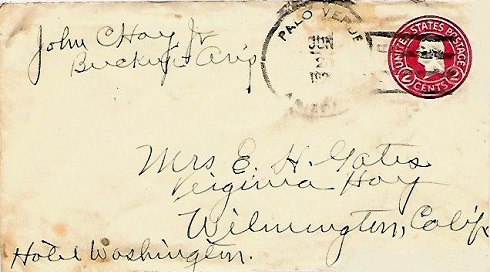 John C Hay Jr
Buckeye Ariz
PALO VERDE
JUN
UNITED STATES POSTAGE
2 CENTS 2
Mrs E. H. Gates
Virginia Hay
Wilmington, Calif
Hotel Washington.